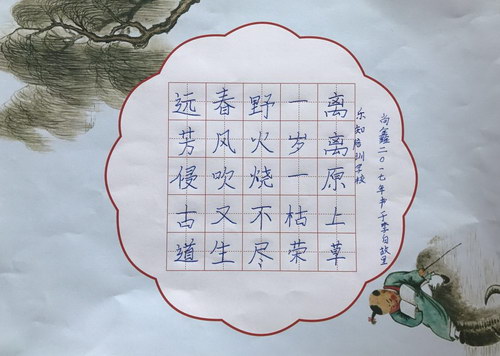 离离原上草
一岁一枯荣
野火烧不尽
春风吹又生
远芳侵古道
乐知培训学校
尚鑫二0一七年书于李白故里